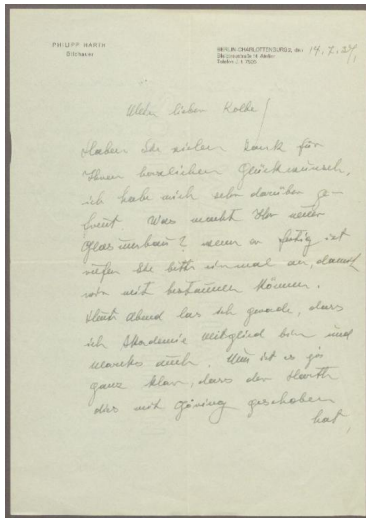 PHILIPP HARTH
Bildhauer
BERLIN-CHARLOTTENBURG 2, den 14.7.37,
Mein lieber Kolbe!
Haben Sie vielen Dank für
Ihren herzlichen Glückwunsch,
ich habe mich sehr darüber ge-
freut. Was macht Ihr neuer
wenn er fertig ist
rufen Sie bitte einmal an, damit
wir mit bestaunen können.
Heute Abend las ich gerade, dass
ich Akademie Mitglied bin und
Marcks auch. Nun ist es ja
ganz klar, dass der Harth
dies mit Göring geschoben
hat,